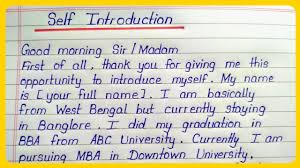 Self Introduction
Good morning Sir/Madam
First of all, thank you for giving me this
opportunity to introduce myself. My name
is [your full name]. I am basically
from West Bengal but currently staying
in Banglore. I did my graduation in
BBA from ABC University. Currently I am
pursuing MBA in Downtown University.